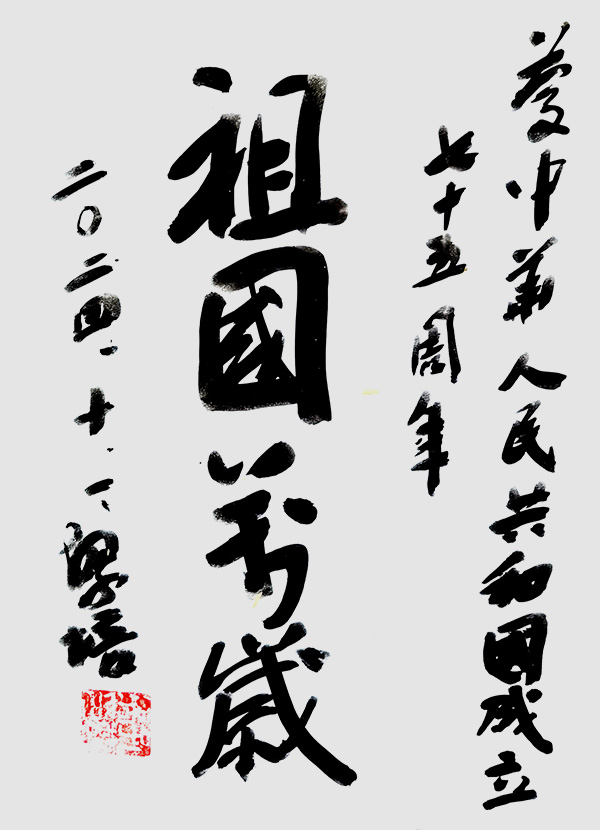 慶中華人民共和國成立
七十五周年
祖國萬歲
二〇二四.十.一 培